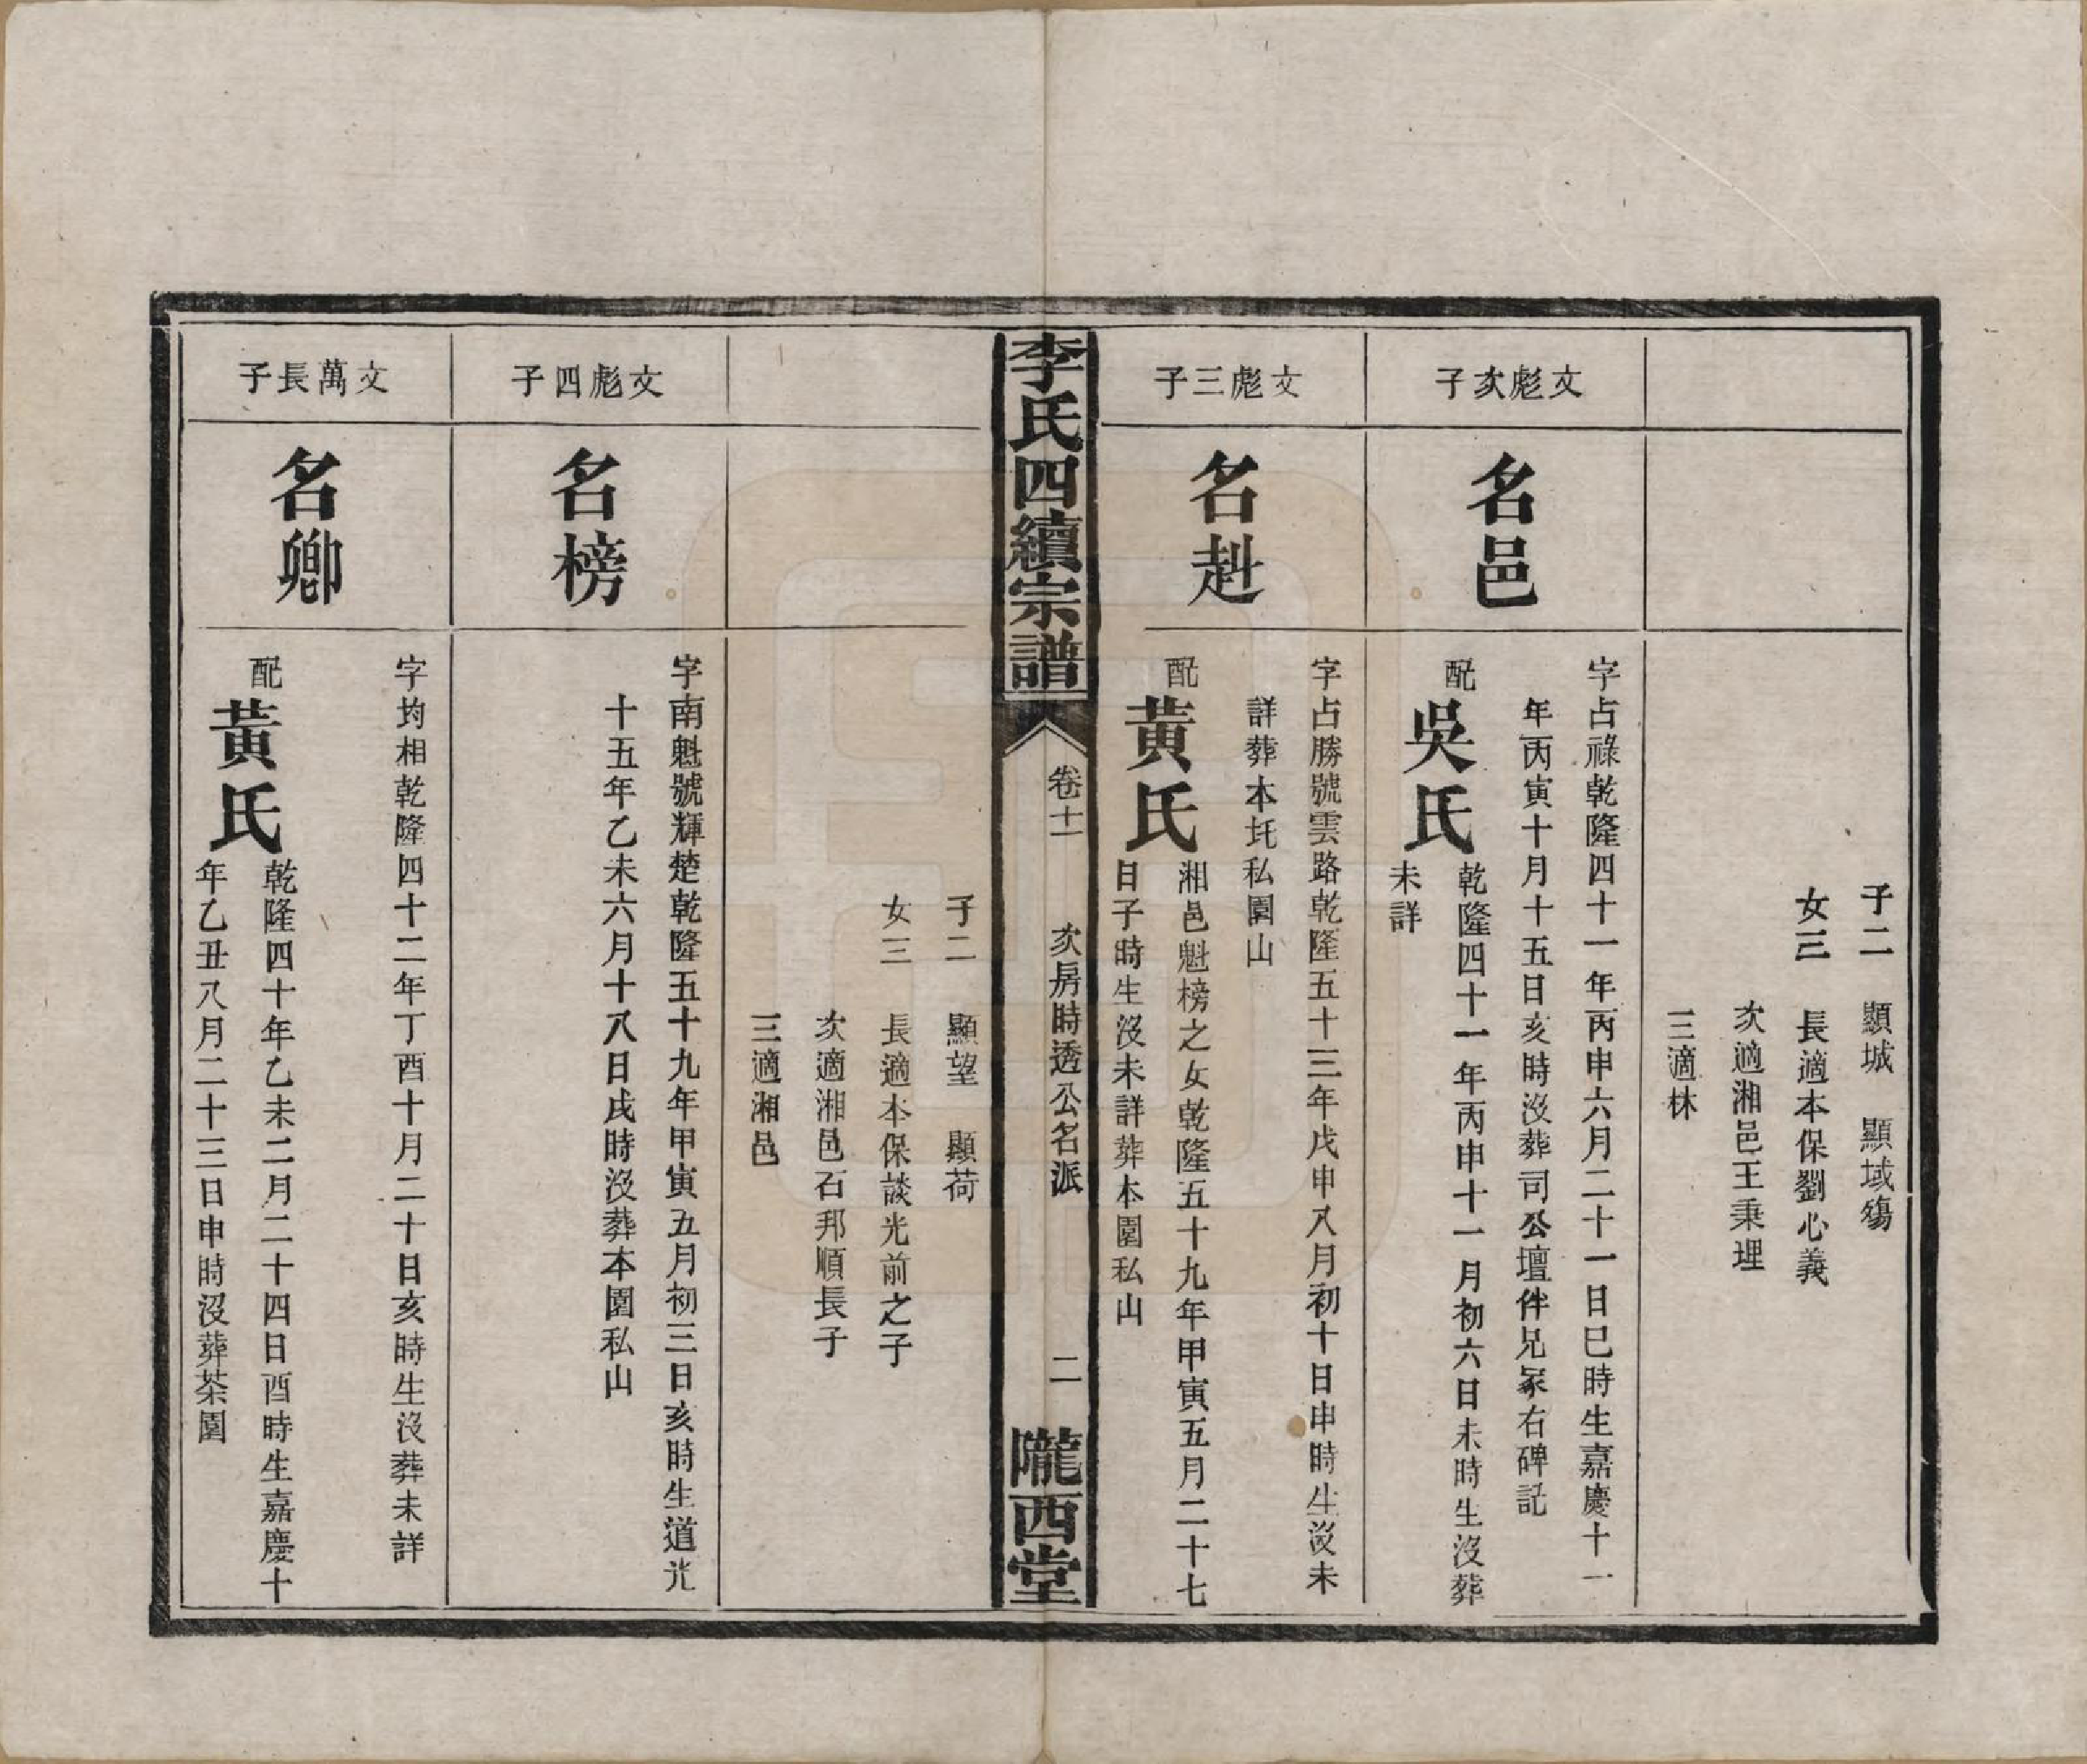 子二　顯城　顯域殤
女三　長適本保劉心義
次適湘邑王秉理
三適林
文彪次子
名邑
字占祿乾隆四十一年丙申六月二十一日巳時生嘉慶十一
年丙寅十月十五日亥時沒葬司公壇伴兄冢右碑記
配吳氏
乾隆四十一年丙申十一月初六日未時生沒葬
未詳
文彪三子
名赳
字占勝號雲路乾隆五十三年戊申八月初十日申時生沒未
詳葬本圫私園山
配黃氏
湘邑魁榜之女乾隆五十九年甲寅五月二十七
日子時生沒未詳葬本園私山
李氏四續宗譜
卷十一
次房時透公名派
二
隴西堂
子二　顯望　顯荷
女三　長適本保談光前之子
次適湘邑石邦順長子
三適湘邑
文彪四子
名榜
字南魁號輝楚乾隆五十九年甲寅五月初三日亥時生道光
十五年乙未六月十八日戌時沒葬本園私山
文萬長子
名卿
字均相乾隆四十二年丁酉十月二十日亥時生沒葬未詳
配黃氏
乾隆四十年乙未二月二十四日酉時生嘉慶十
年乙丑八月二十三日申時沒葬茶園